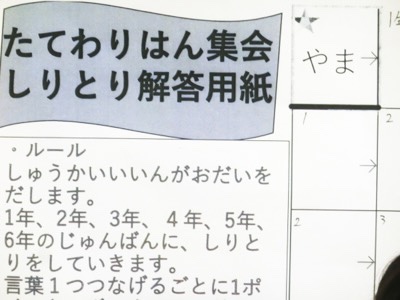 たてわりはん集会
しりとり解答用紙
・ルール
しゅうかいいいんがおだいを
だします。
1年、2年、3年、４年、5年、
6年のじゅんばんに、しりと
りをしていきます。
言葉１つつなげるごとに1ポ
やま→
1
→
2
2
→
3